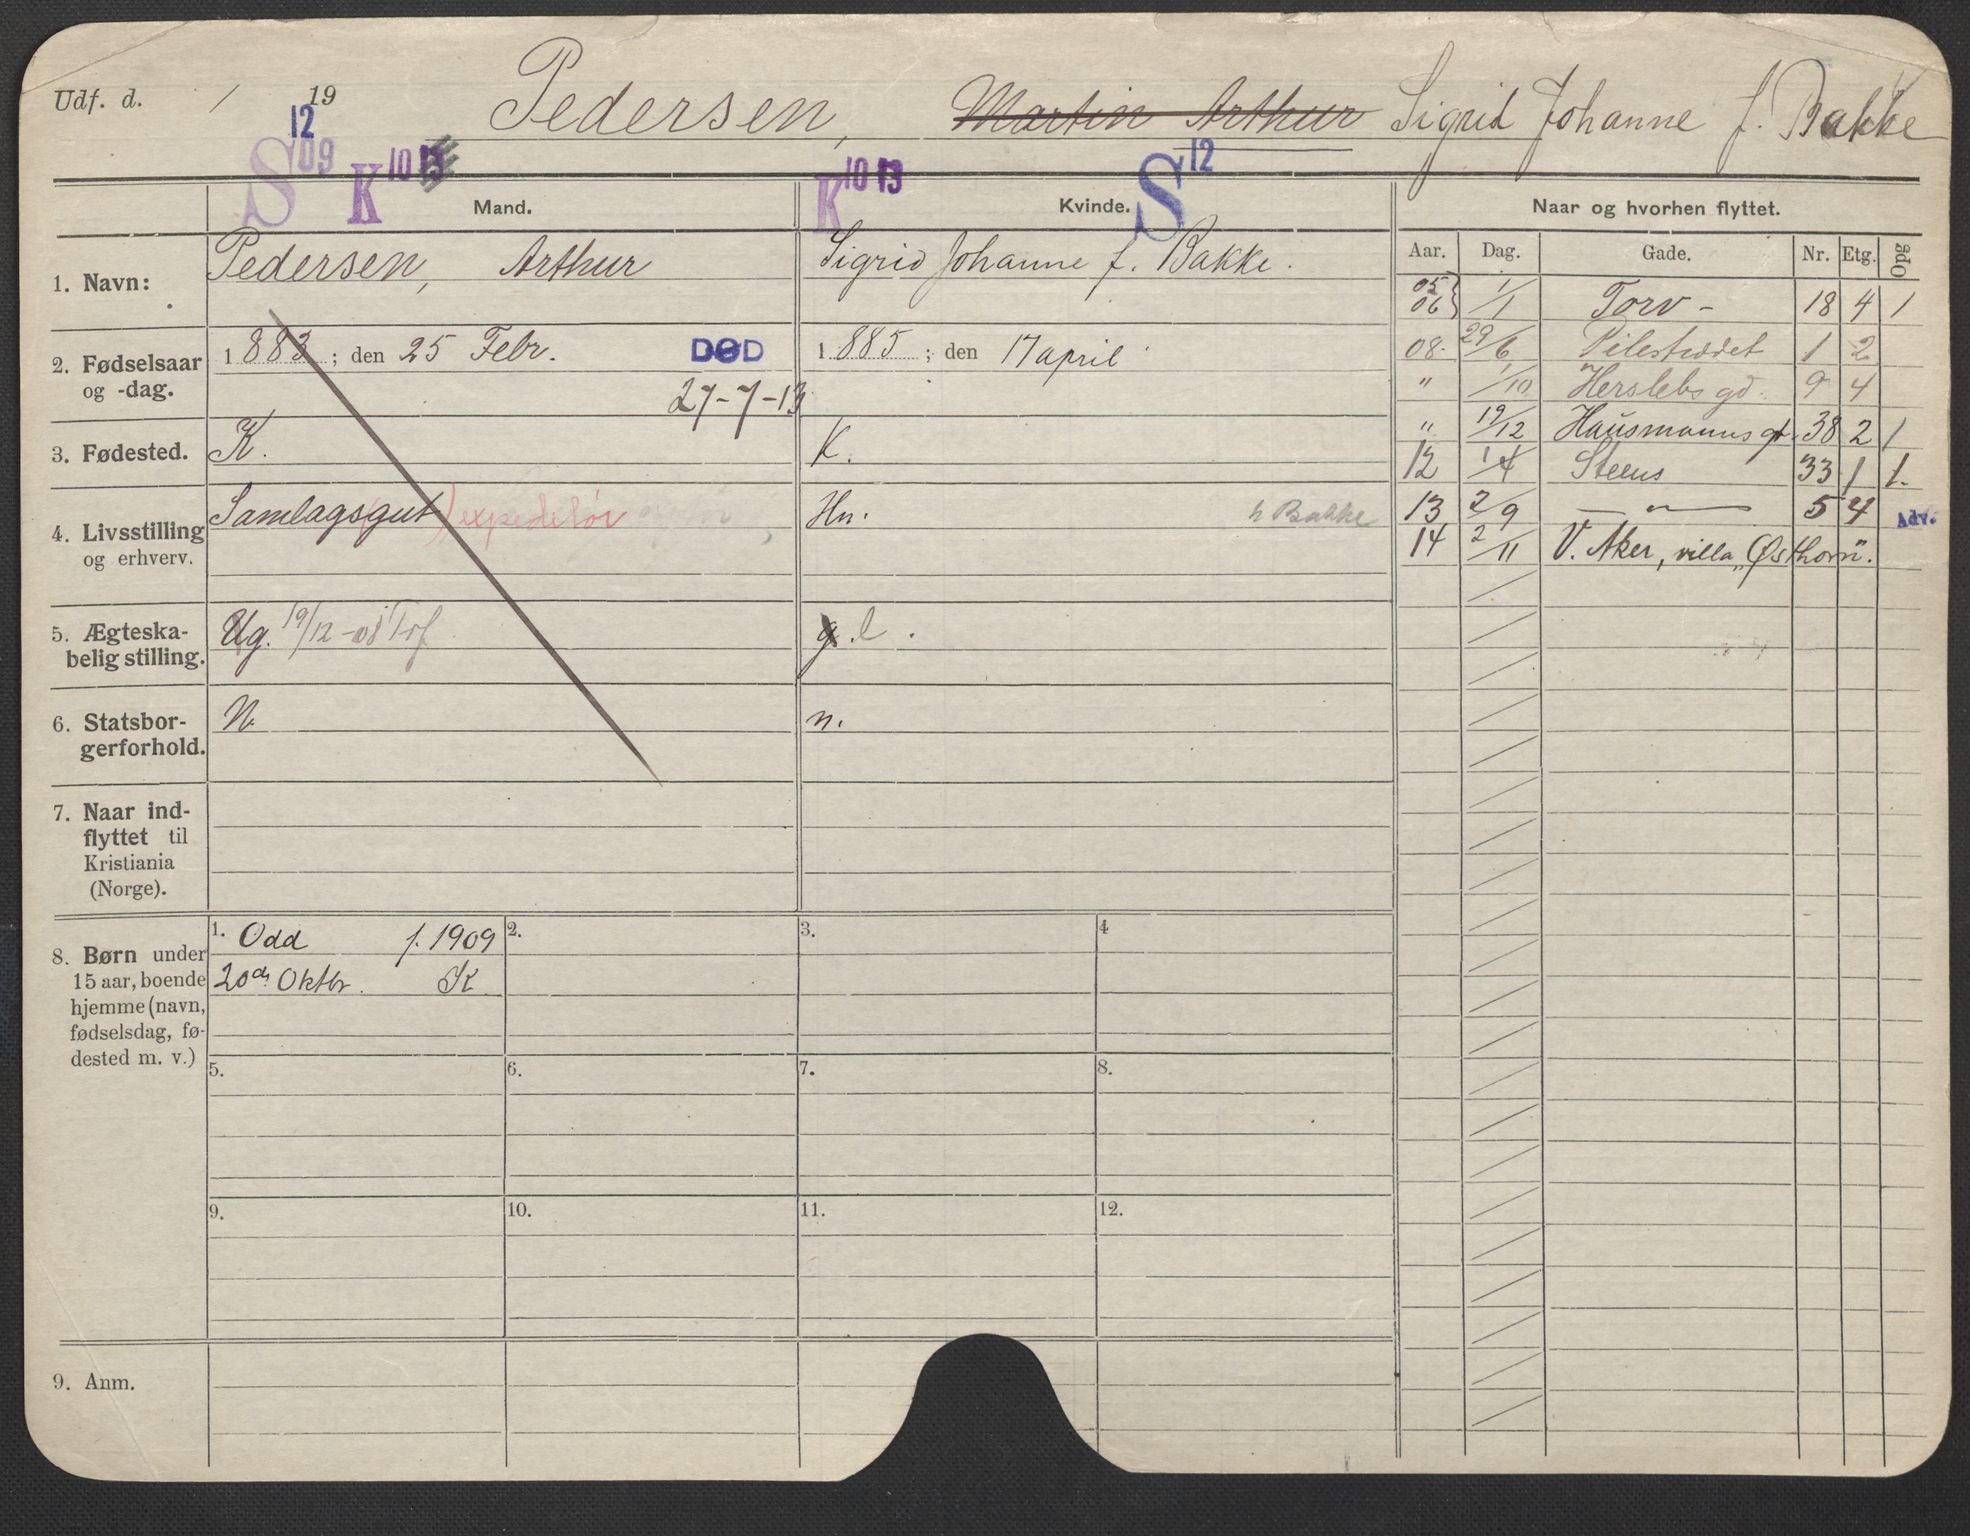 Udf. d. / 19
Pedersen, Martin Arthur Sigrid Johanne f. Bakke
S 12 09 K 10 13
K 10 13 S 12
Mand.
Kvinde.
Naar og hvorhen flyttet.
1. Navn:
Pedersen, Arthur
Sigrid Johanne f. Bakke.
2. Fødselsaar
og -dag.
1883; den 25 Febr.
DØD
27-7-13
1885; den 17 april
3. Fødested.
K.
K.
4. Livsstilling
og erhverv.
Samlagsgut) expeditør
Hn. h Bakke
5. Ægteska-
belig stilling.
Ug. 19/12-08 Trf.
g. l.
6. Statsbor-
gerforhold.
N.
n.
7. Naar ind-
flyttet til
Kristiania
(Norge).
8. Børn under
15 aar, boende
hjemme (navn,
fødselsdag, fø-
dested m. v.)
1. Odd f. 1909
20de Oktbr. K
2.
3.
4
5.
6.
7.
8.
9.
10.
11.
12.
9. Anm.
Aar. Dag. Gade. Nr. Etg. Opg
05
06} 1/1 Torv - 18 4 1
08. 29/6 Pilestrædet 1 2
" 1/10 Herslebs gd. 9 4
" 19/12 Hausmanns gt. 38 2 1
12 14/4 Steens 33 1 1.
13 2/9 — " — 5 4 Adv.
14 2/11 V. Aker, villa „Østhorn".